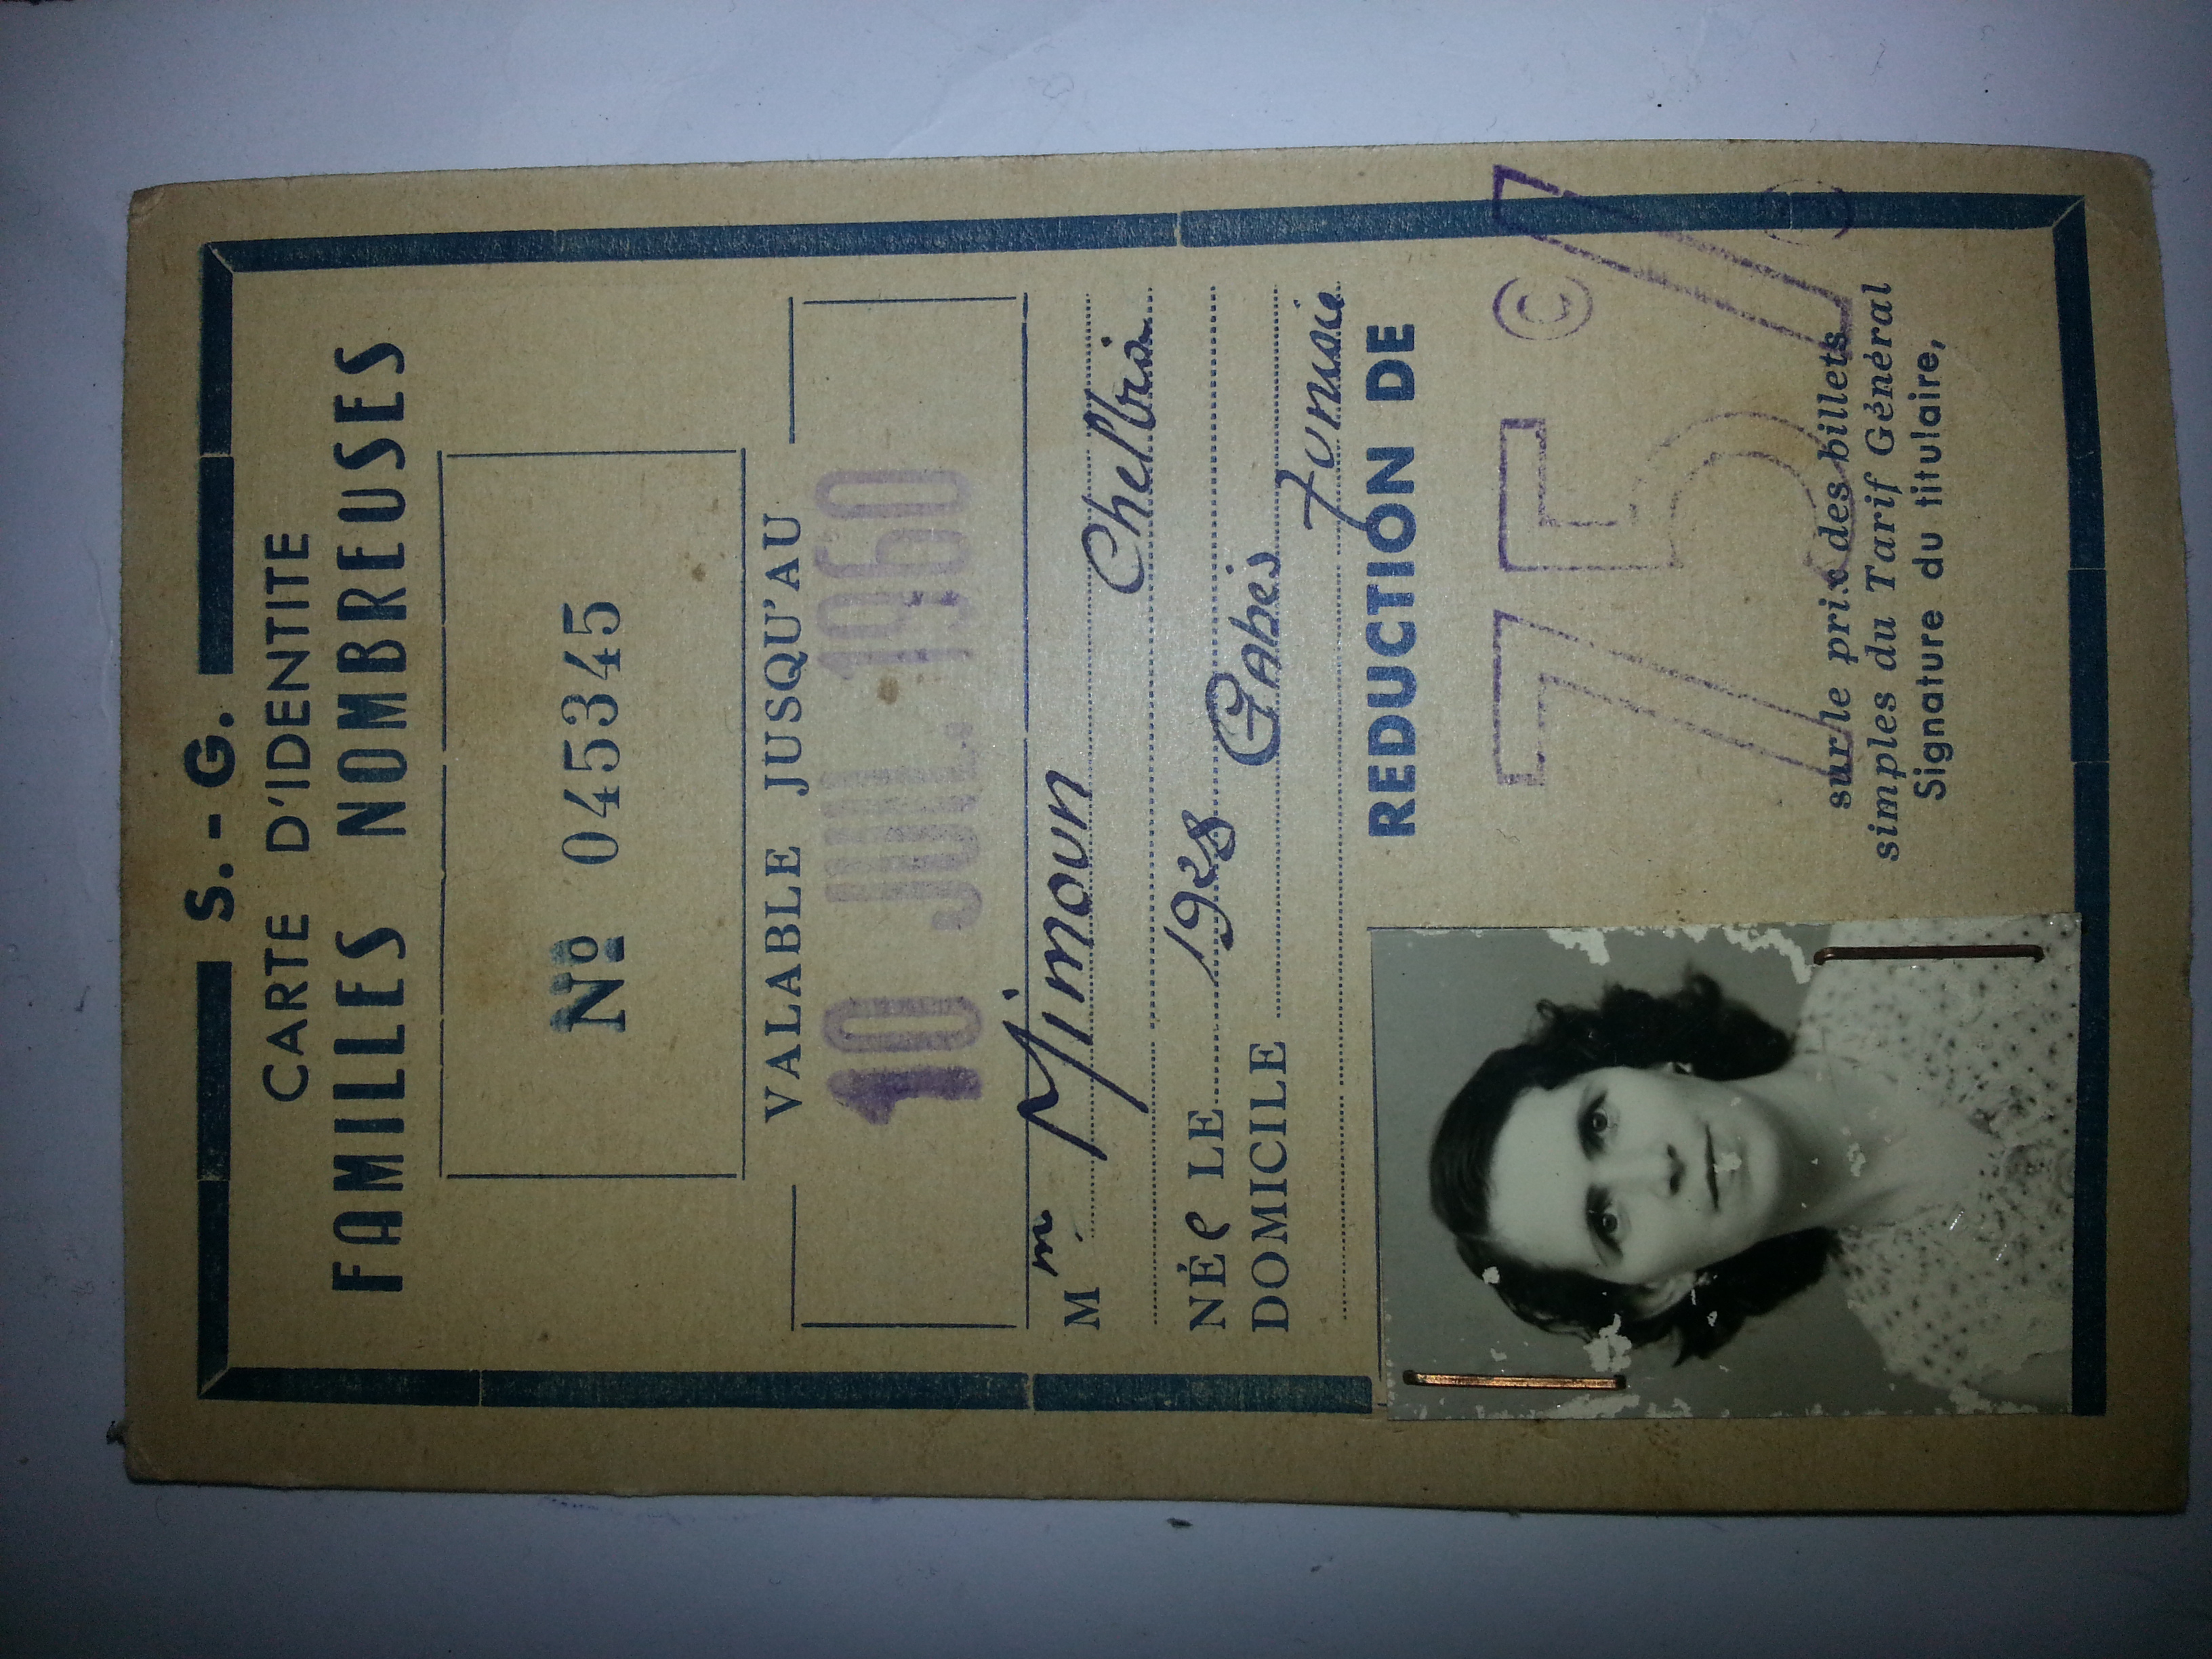 S.-G.
CARTE D'IDENTITE
FAMILLES NOMBREUSES
Nº 045345
VALABLE JUSQU'AU
10 JUIL. 1960
Mm. Mimoun
NÉe LE 1928
DOMICILE Gabès
Tunisie
REDUCTION DE
75 %
sur le prix des billets
simples du Tarif Général
Signature du titulaire,